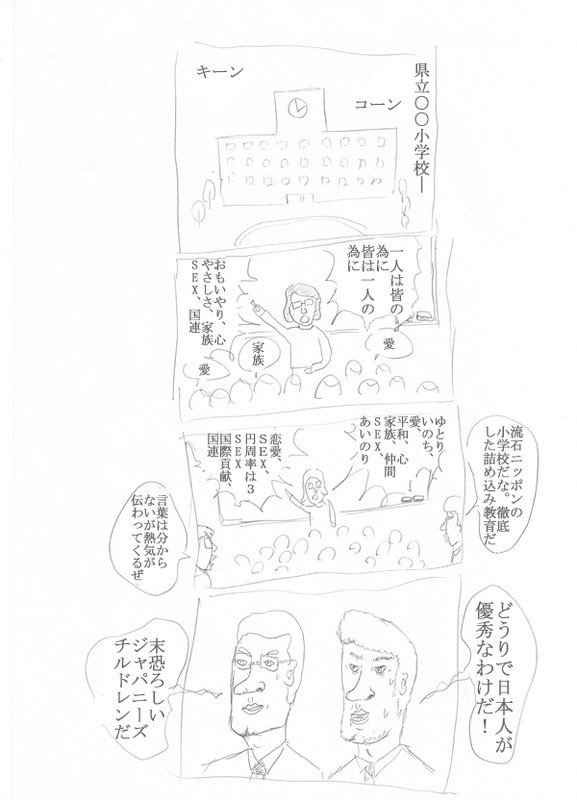 県立〇〇小学校―
コーン
キーン
一人は皆の
為に
皆は一人の
為に
愛
家族
愛
おもいやり、心
やさしさ、家族
ＳＥＸ、国連
流石ニッポンの
小学校だな。徹底
した詰め込み教育だ
ゆとり
いのち、
愛、
平和、心
家族、仲間
ＳＥＸ、
あいのり
恋愛、
ＳＥＸ、
円周率は３
ＳＥＸ
国際貢献、
国連
言葉は分から
ないが熱気が
伝わってくるぜ
どうりで日本人が
優秀なわけだ！
末恐ろしい
ジャパニーズ
チルドレンだ